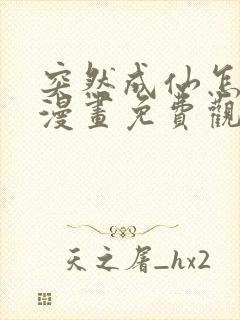 突然成仙怎
漫畫免費觀
天之屠_hx2